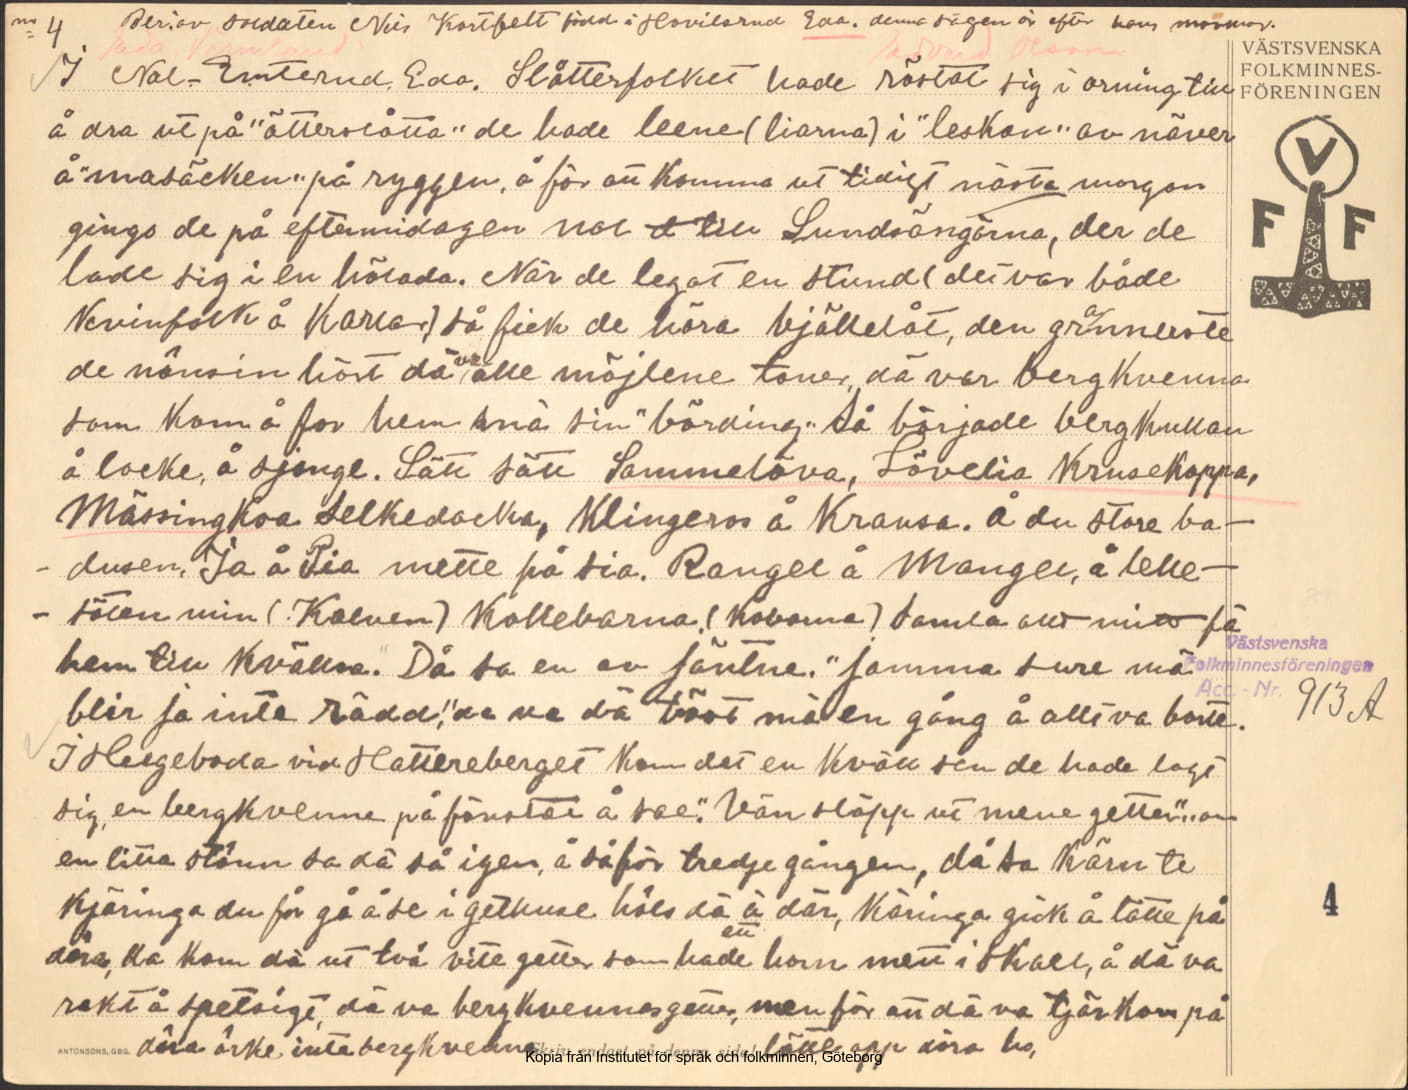 no 4 Ber. av soldaten Nils Kortfelt född i Hovilsrud Eda. denna sägen är efter hans mormor.
Eda. Värmland. Edvard Olson
I Nol-Emterud, Eda. Slåtterfolket hade röstat sig i orning till
å dra ut på "ötterslåtta" de hade leene (liarna) i "leskon" av näver
å "masäcken" på ryggen, å för att komma ut tidigt nästa morgon
gingo de på eftermidagen nol till Lundsängärna, der de
lade sig i en hölada. När de legat en stund (det var både
Kvinfolk å Karlar) så fick de höra bjällelåt, den grånneste
de nônsin hört dä va alle möjlene toner, dä var bergkvenna
som kom å for hem mä sin "börding". Så började bergkullan
å locke, å sjonge. Sätt sätt Sammelöva, Lövelia Krusekoppa,
Mässingkoa Selkedocka, Klingeros å Kransa. Å du store ba-
-dusen, Ia å Pia mette på sia. Rangel å Mangel, å lelle-
-söten min (Kalven) Kollebarna (koborna) Samla allt mitt få
hem till Kvälln." Då sa en av jäntne. "jamma sure mä
blir ja inte rädd!" da va dä töst mä en gång å allt va borte.
I Helgeboda vid Hattereberget kom det en kväll sen de hade lagt
sig, en bergkvenne på fönstat å sae: "Vän släpp ut mene getter"
en litta stônn sa dä så igen, å så för tredje gången, då sa Kärn te
Kjäringa du får gå å se i gethuse höls dä ä där, Käringa gick å lätte på
döra, da kom dä ut två vite getter som hade ett horn mett i Skall, å dä va
rakt å spetsigt, dä va bergkvennas getter, men för att dä va tjärkors på
döra örke inte bergkvenna lätte opp döra ho,
VÄSTSVENSKA
FOLKMINNES-
FÖRENINGEN
V
F F
Västsvenska
Folkminnesföreningen
Acc. - Nr. 913 A
4
ANTONSONS, GBG.
Skriv endast på denna sida!
Kopia från Institutet för språk och folkminnen, Göteborg